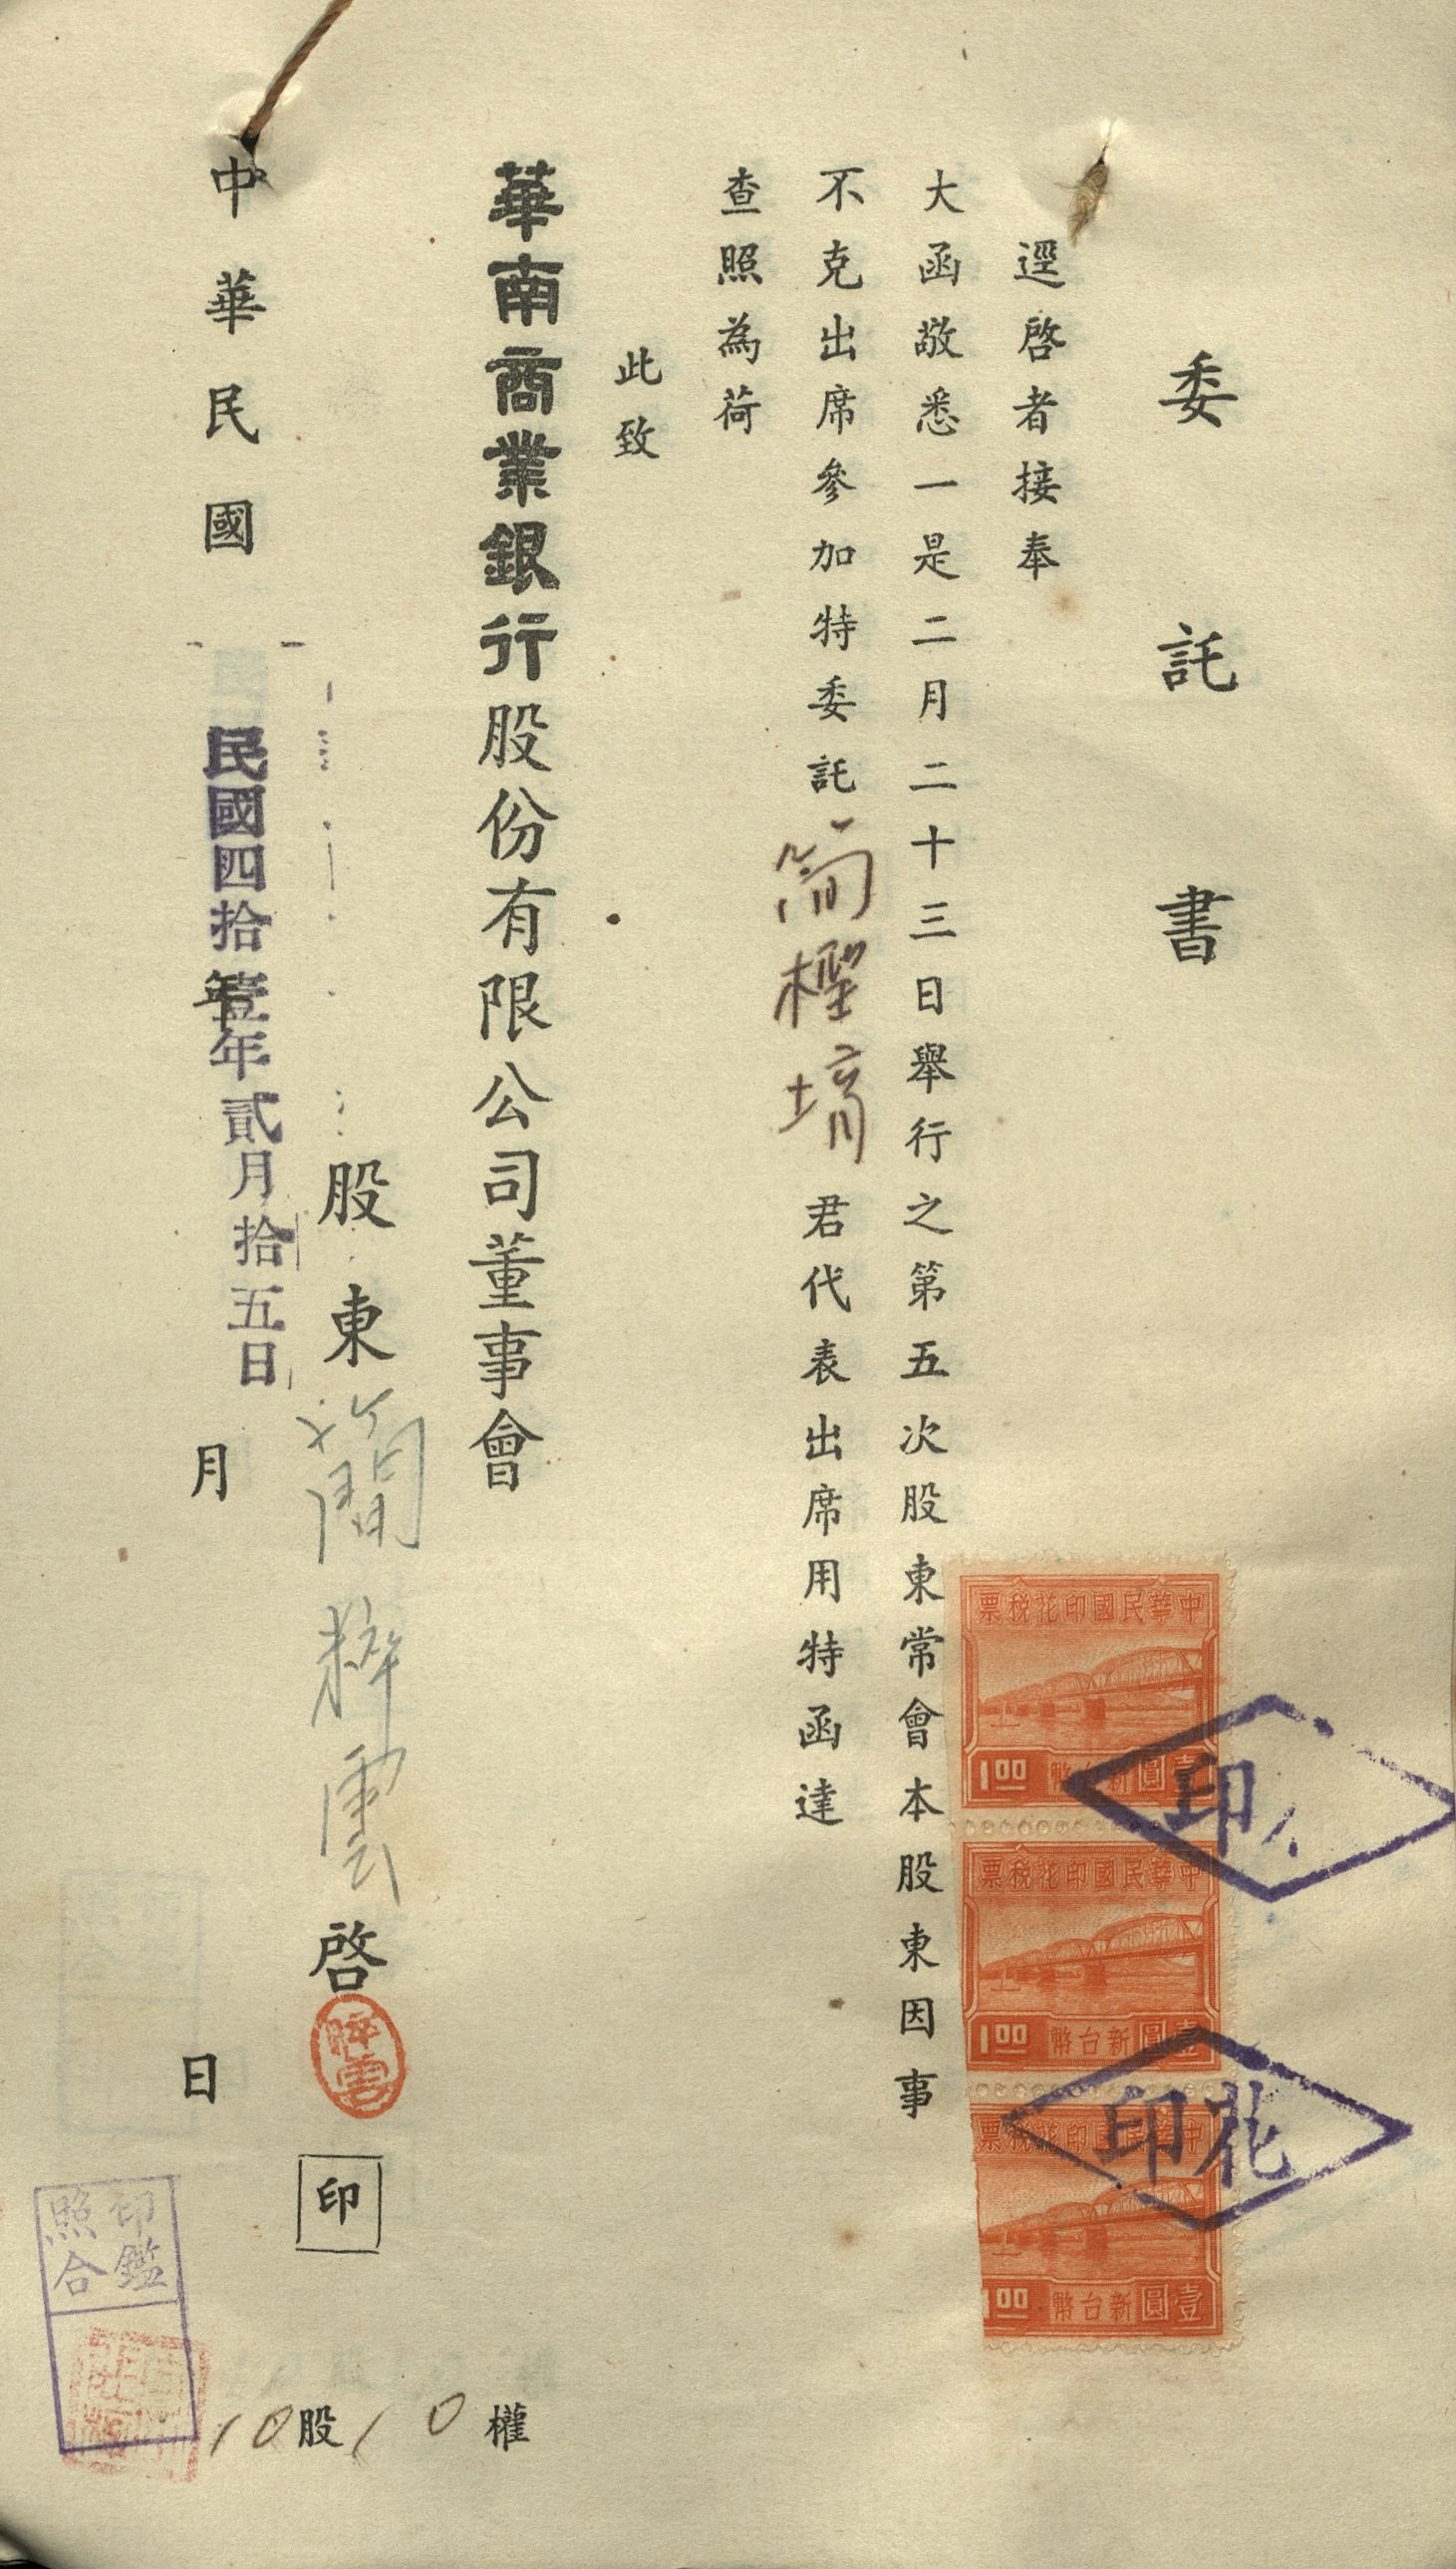 委託書
逕啓者接奉
大函敬悉一是二月二十三日舉行之第五次股東常會本股東因事
不克出席參加特委託簡檉堉君代表出席用特函達
查照為荷
此致
華南商業銀行股份有限公司董事會
股東簡粹雲啓
粹雲
印
10股10權
中華民國 年 月 日
民國四拾壹年貳月拾五日
印鑑
照合
中華民國印花稅票
1.00 壹圓新台幣
中華民國印花稅票
1.00 壹圓新台幣
中華民國印花稅票
1.00 壹圓新台幣
印
印花